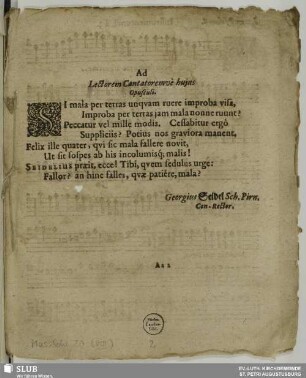 Ad
Lectorem Cantatoremvè hujus
Opusculi.
SI mala per terras unqvam ruere improba visa,
Improba per terras jam mala nonne ruunt?
Peccatur vel mille modis. Cessabitur ergò
Suppliciis? Potius nos graviora manent.
Felix ille quater, qvi sic mala fallere novit,
Ut sit sospes ab his incolumisq; malis!
SEIDELIUS præit, ecce! Tibi, qvem sedulus urge:
Fallor? an hinc falles, qvæ patière, mala?
Georgius Seidel Sch. Pirn.
Con-Rector.
A 2
2.
SLUB
Wir führen Wissen.
EV.-LUTH. KIRCHGEMEINDE
ST. PETRI AUGUSTUSBURG